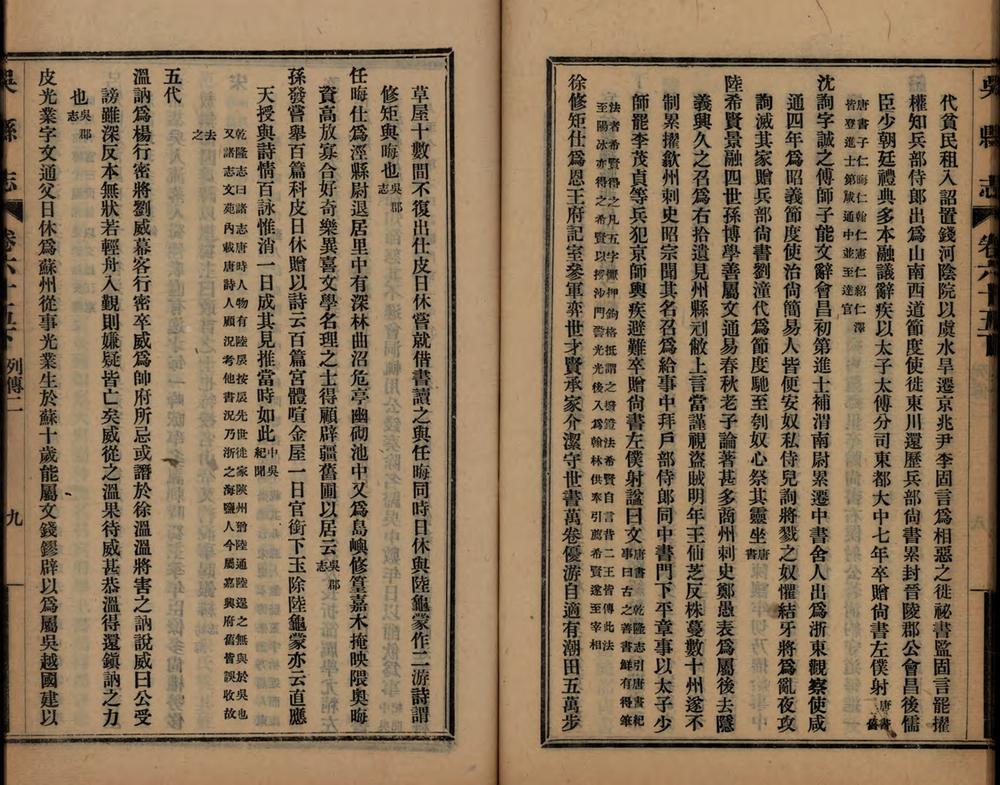 吳縣志 卷六十五下
代貧民租入詔置錢河陰院以虞水旱遷京兆尹李固言爲相惡之徙祕書監固言罷擢
權知兵部侍郎出爲山南西道節度使徙東川還歷兵部尚書累封晉陵郡公會昌後儒
臣少朝廷禮典多本融議辭疾以太子太傅分司東都大中七年卒贈尚書左僕射舊唐書
唐書子仁晦仁翰仁憲仁紹仁澤
皆登進士第咸通中並至達官
沈詢字誠之傅師子能文辭會昌初第進士補渭南尉累遷中書舍人出爲浙東觀察使咸
通四年爲昭義節度使治尚簡易人皆便安奴私侍兒詢將戮之奴懼結牙將爲亂夜攻
詢滅其家贈兵部尚書劉潼代爲節度馳至刳奴心祭其靈坐唐書
陸希賢景融四世孫博學善屬文通易春秋老子論著甚多商州刺史鄭愚表爲屬後去隱
義興久之召爲右拾遺見州縣刓敝上言當謹視盜賊明年王仙芝反株蔓數十州遂不
制累擢歙州刺史昭宗聞其名召爲給事中拜戶部侍郎同中書門下平章事以太子少
師罷李茂貞等兵犯京師輿疾避難卒贈尚書左僕射諡曰文唐書
乾隆志引唐書紀
事曰古之善書鮮有得筆
法者希賢得之凡五字擫押鉤格抵謂之撥鐙法希賢自言昔二王皆傳此法
至陽冰亦得之希賢以授沙門䛒光光後入爲翰林供奉引薦希賢遂至宰相
徐修矩仕爲恩王府記室參軍弈世才賢承家介潔守世書萬卷優游自適有潮田五萬步
草屋十數間不復出仕皮日休嘗就借書讀之與任晦同時日休與陸龜蒙作二游詩謂
修矩與晦也吳郡志
任晦仕爲涇縣尉退居里中有深林曲沼危亭幽砌池中又爲島嶼修篁嘉木掩映隈奧晦
資高放寡合好奇樂異喜文學名理之士得顧辟疆舊圃以居云吳郡志
孫發嘗舉百篇科皮日休贈以詩云百篇宮體喧金屋一日官銜下玉除陸龜蒙亦云直應
天授與詩情百詠惟消一日成其見推當時如此中吳紀聞
乾隆志曰諸志唐時人物有陸扆按扆先世徙家陝州猶陸通陸逞之無與於吳也
又諸志文苑內載唐詩人顧況考他書況乃浙之海鹽人今屬嘉興府舊皆誤收故
去之
五代
溫訥爲楊行密將劉威幕客行密卒威爲帥府所忌或譖於徐溫溫將害之訥說威曰公受
謗雖深反本無狀若輕舟入覲則嫌疑皆亡矣威從之溫果待威甚恭溫得還鎮訥之力
也吳郡志
皮光業字文通父日休爲蘇州從事光業生於蘇十歲能屬文錢鏐辟以爲屬吳越國建以
吳縣志 卷六十五下 列傳二 九